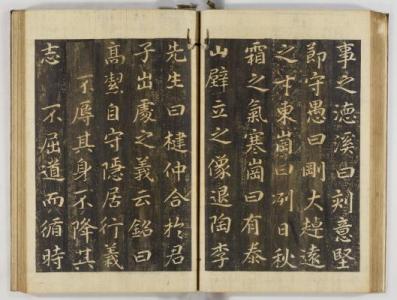 事之德溪曰刻意堅
節守愚曰剛大廷遠
之才東崗曰冽日秋
霜之氣寒崗曰有泰
山壁立之像退陶李
先生曰楗仲合於君
子出處之義云銘曰
高潔自守隱居行義
不辱其身不降其
志 不屈道而循時